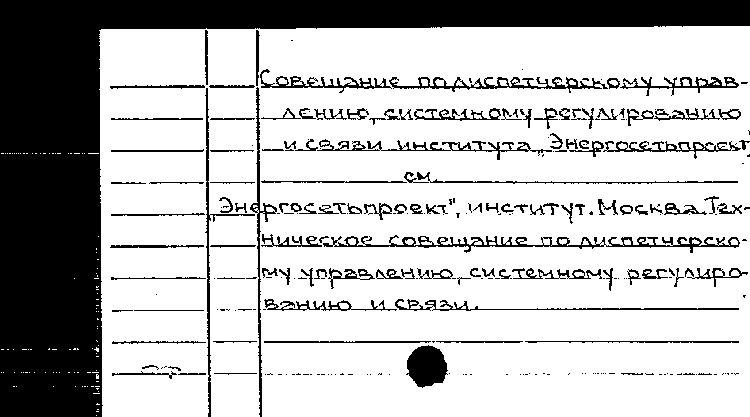 Совещание по диспетчерскому управ-
лению, системному регулированию
и связи института „Энергосетьпроект"
см.
„Энергосетьпроект", институт. Москва. Тех-
ническое совещание по диспетчерско-
му управлению, системному регулиро-
ванию и связи.